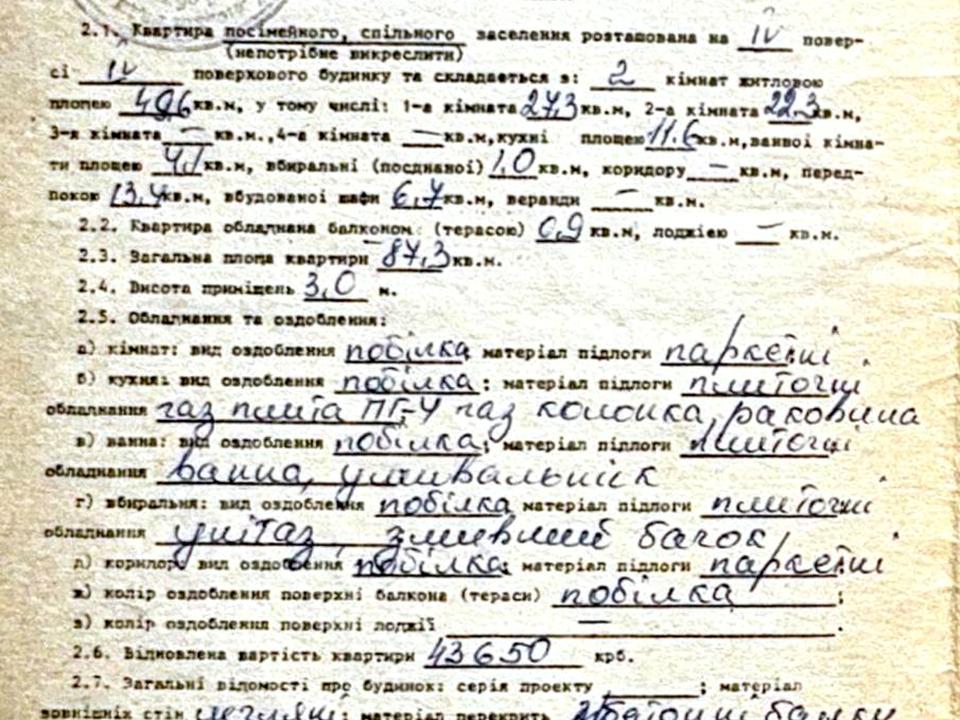 2.1. Квартира посімейного, спільного заселення розташована на IV повер-
(непотрібне викреслити)
сі IV поверхового будинку та складається з: 2 кімнат житловою
площею 49,6 кв.м, у тому числі: 1-а кімната 27,3 кв.м, 2-а кімната 22,3 кв.м,
3-я кімната — кв.м.,4-а кімната — кв.м,кухні площею 11.6 кв.м,ванної кімна-
ти площею 4,1 кв.м, вбиральні (поєднаної) 1,0 кв.м, коридору — кв.м, перед-
покою 13,4 кв.м, вбудованої шафи 6,7 кв.м, веранди — кв.м.
2.2. Квартира обладнана балконом (терасою) 0,9 кв.м, лоджією — кв.м.
2.3. Загальна площа квартири 87,3 кв.м.
2.4. Висота приміщень 3,0 м.
2.5. Обладнання та оздоблення:
а) кімнат: вид оздоблення побілка матеріал підлоги паркетні.
б) кухня: вид оздоблення побілка; матеріал підлоги плиточні
обладнання газ плита ПГ-4 газ колонка, раковина
в) ванна: вид оздоблення побілка; матеріал підлоги плиточні
обладнання ванна, умивальнік
г) вбиральня: вид оздоблення побілка матеріал підлоги плиточні
обладнання унітаз, змивний бачок
д) коридор: вид оздоблення побілка: матеріал підлоги паркетні
ж) колір оздоблення поверхні балкона (тераси) побілка;
з) колір оздоблення поверхні лоджії —.
2.6. Відновлена вартість квартири 43650 крб.
2.7. Загальні відомості про будинок: серія проекту ; матеріал
зовнішніх стін цегляні; матеріал перекрить балки